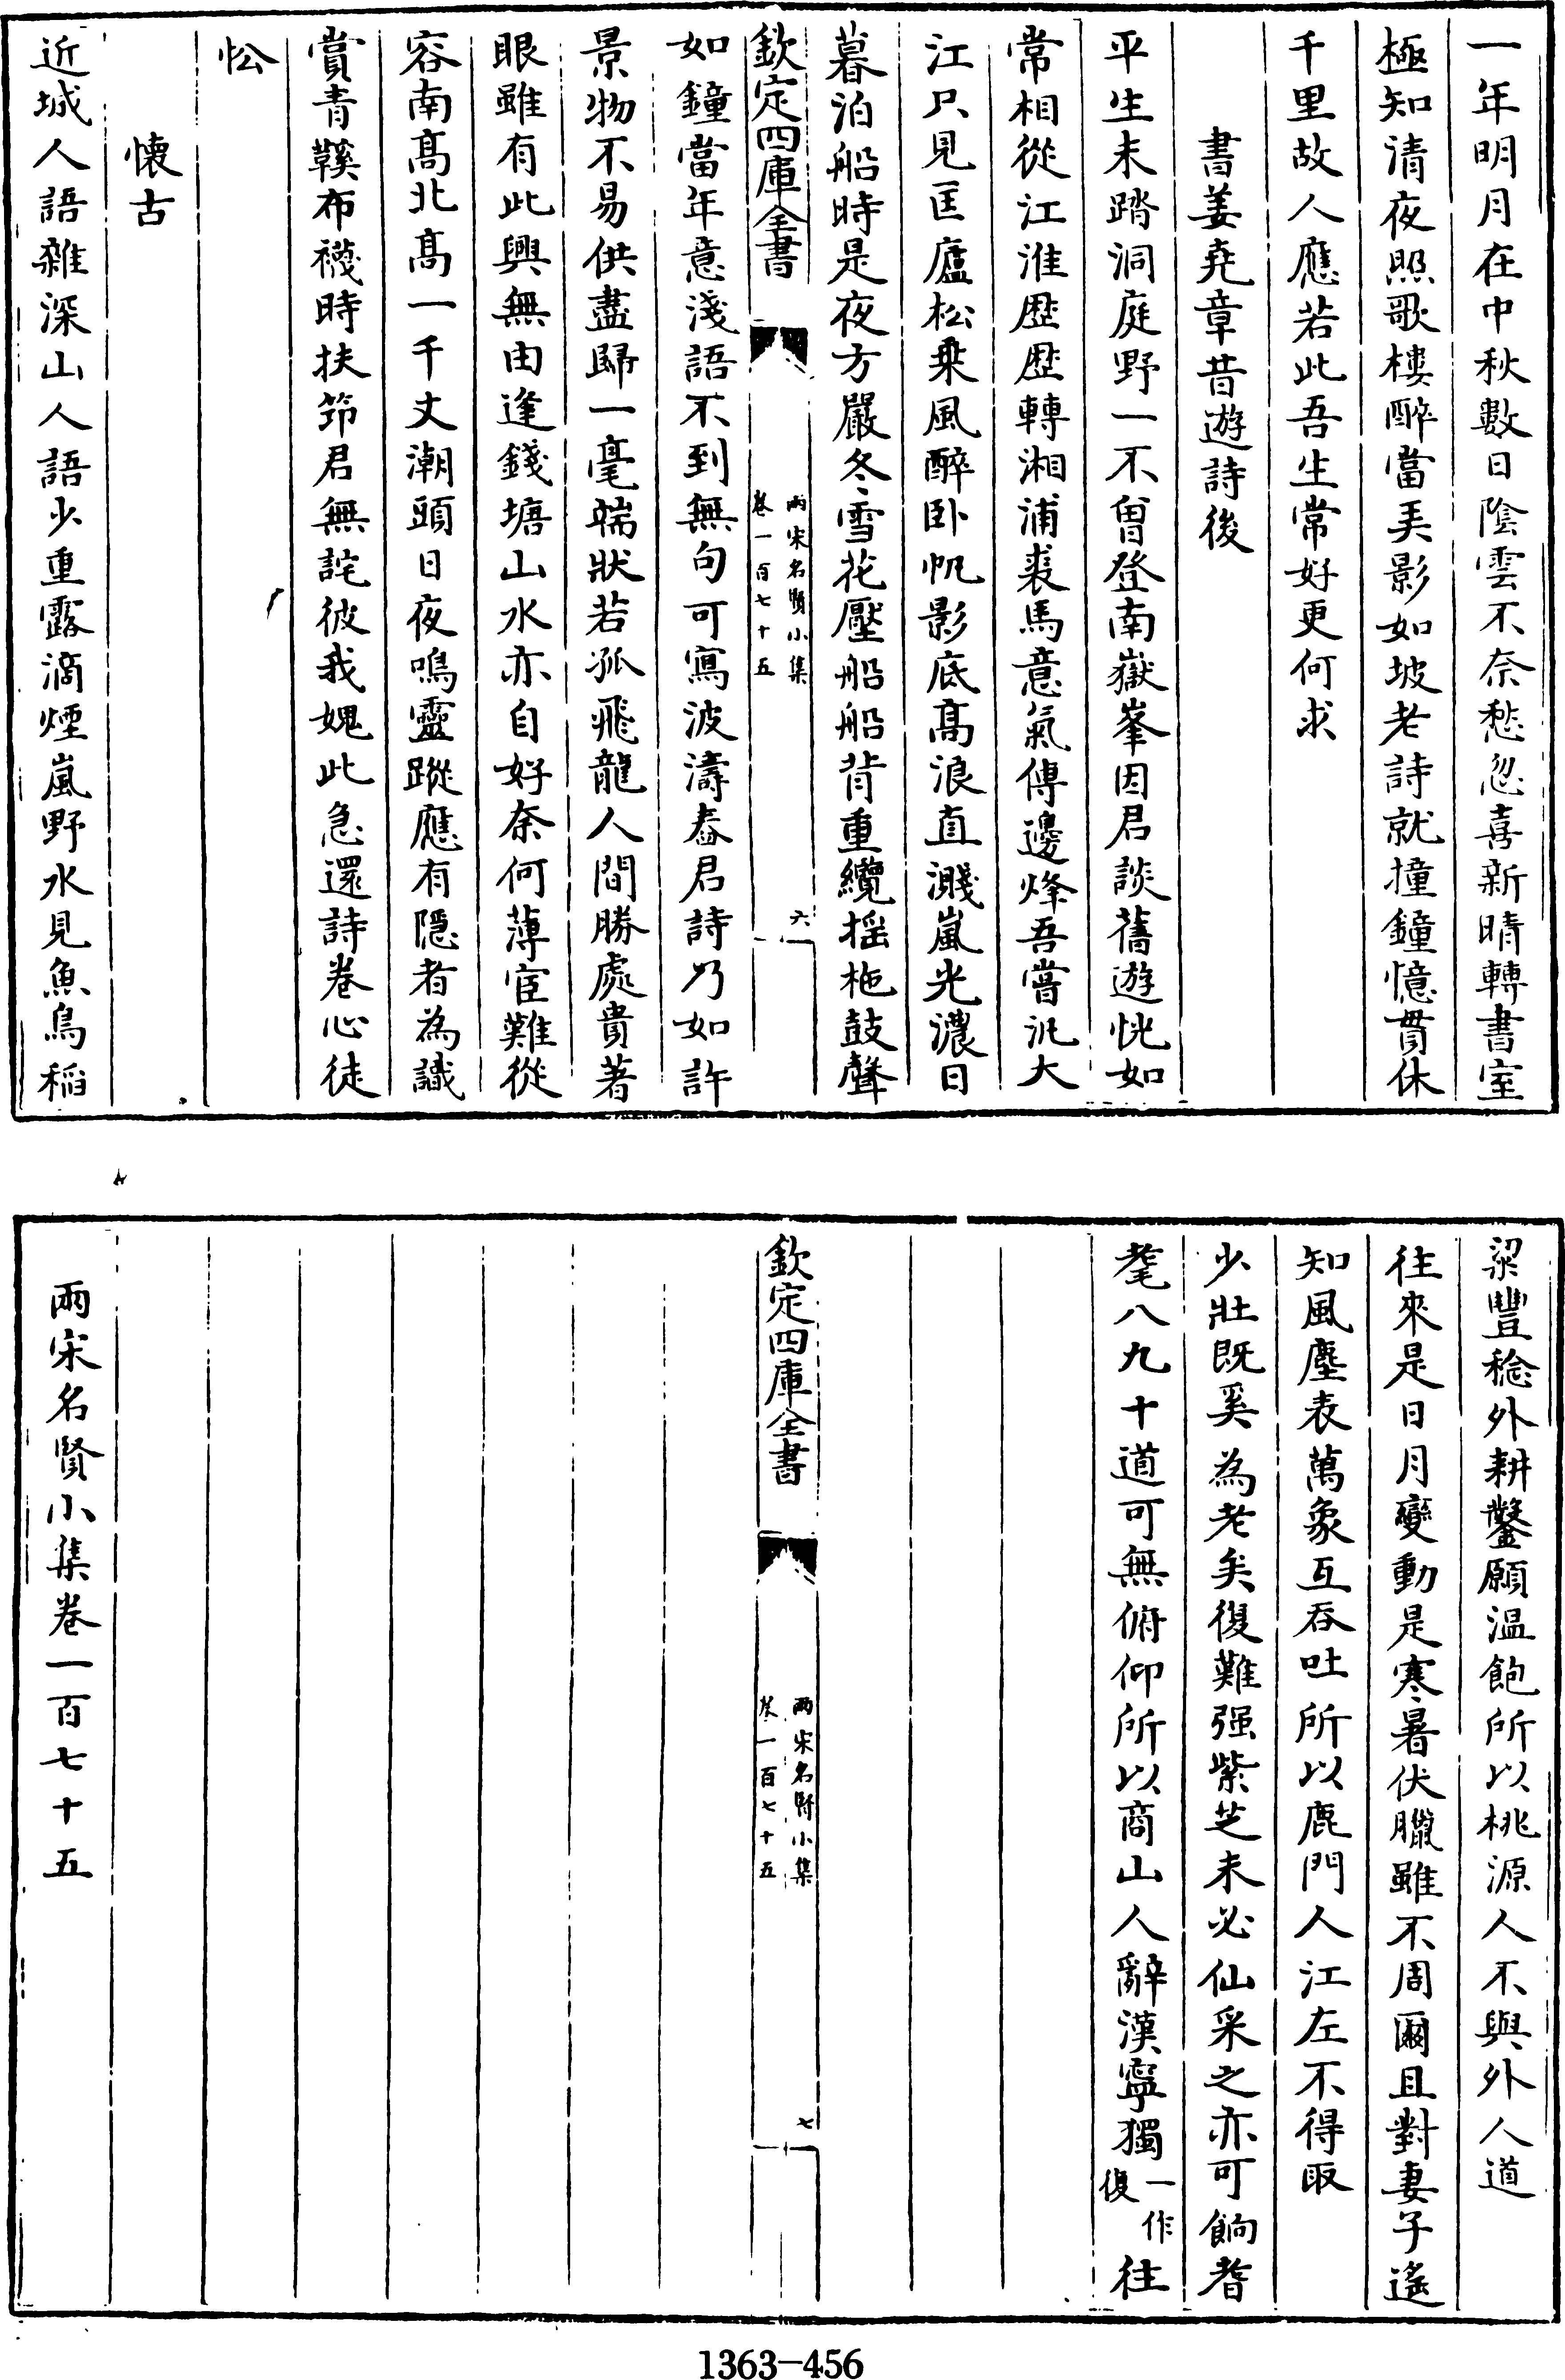 一年明月在中秋數日陰雲不奈愁忽喜新晴轉書室
極知清夜照歌樓醉當弄影如坡老詩就撞鐘憶貫休
千里故人應若此吾生常好更何求
書姜堯章昔遊詩後
平生未踏洞庭野一不曾登南嶽峯因君談舊遊恍如
常相從江淮歷歷轉湘浦裘馬意氣傳邊烽吾嘗汎大
江只見匡廬松乗風醉卧帆影底髙浪直濺嵐光濃日
暮泊船時是夜方嚴冬雪花壓船船背重纜揺柂鼓聲
欽定四庫全書
兩宋名賢小集
卷一百七十五
六
如鐘當年意淺語不到無句可寫波濤舂君詩乃如許
景物不易供盡歸一毫端狀若孤飛龍人間勝處貴著
眼雖有此興無由逢錢塘山水亦自好奈何薄宦難從
容南髙北髙一千丈潮頭日夜鳴靈蹤應有隱者為識
賞青鞵布襪時扶笻君無詫彼我媿此急還詩卷心徒
忪
懐古
近城人語雜深山人語少重露滴煙嵐野水見魚鳥稻
粱豐稔外耕鑿願溫飽所以桃源人不與外人道
往來是日月變動是寒暑伏臘雖不周爾且對妻子遙
知風塵表萬象互吞吐所以鹿門人江左不得取
少壯既奚為老矣復難强紫芝未必仙采之亦可餉耆
耄八九十道可無俯仰所以商山人辭漢寧獨一作復往
欽定四庫全書
兩宋名賢小集
卷一百七十五
七
兩宋名賢小集卷一百七十五
1363-456